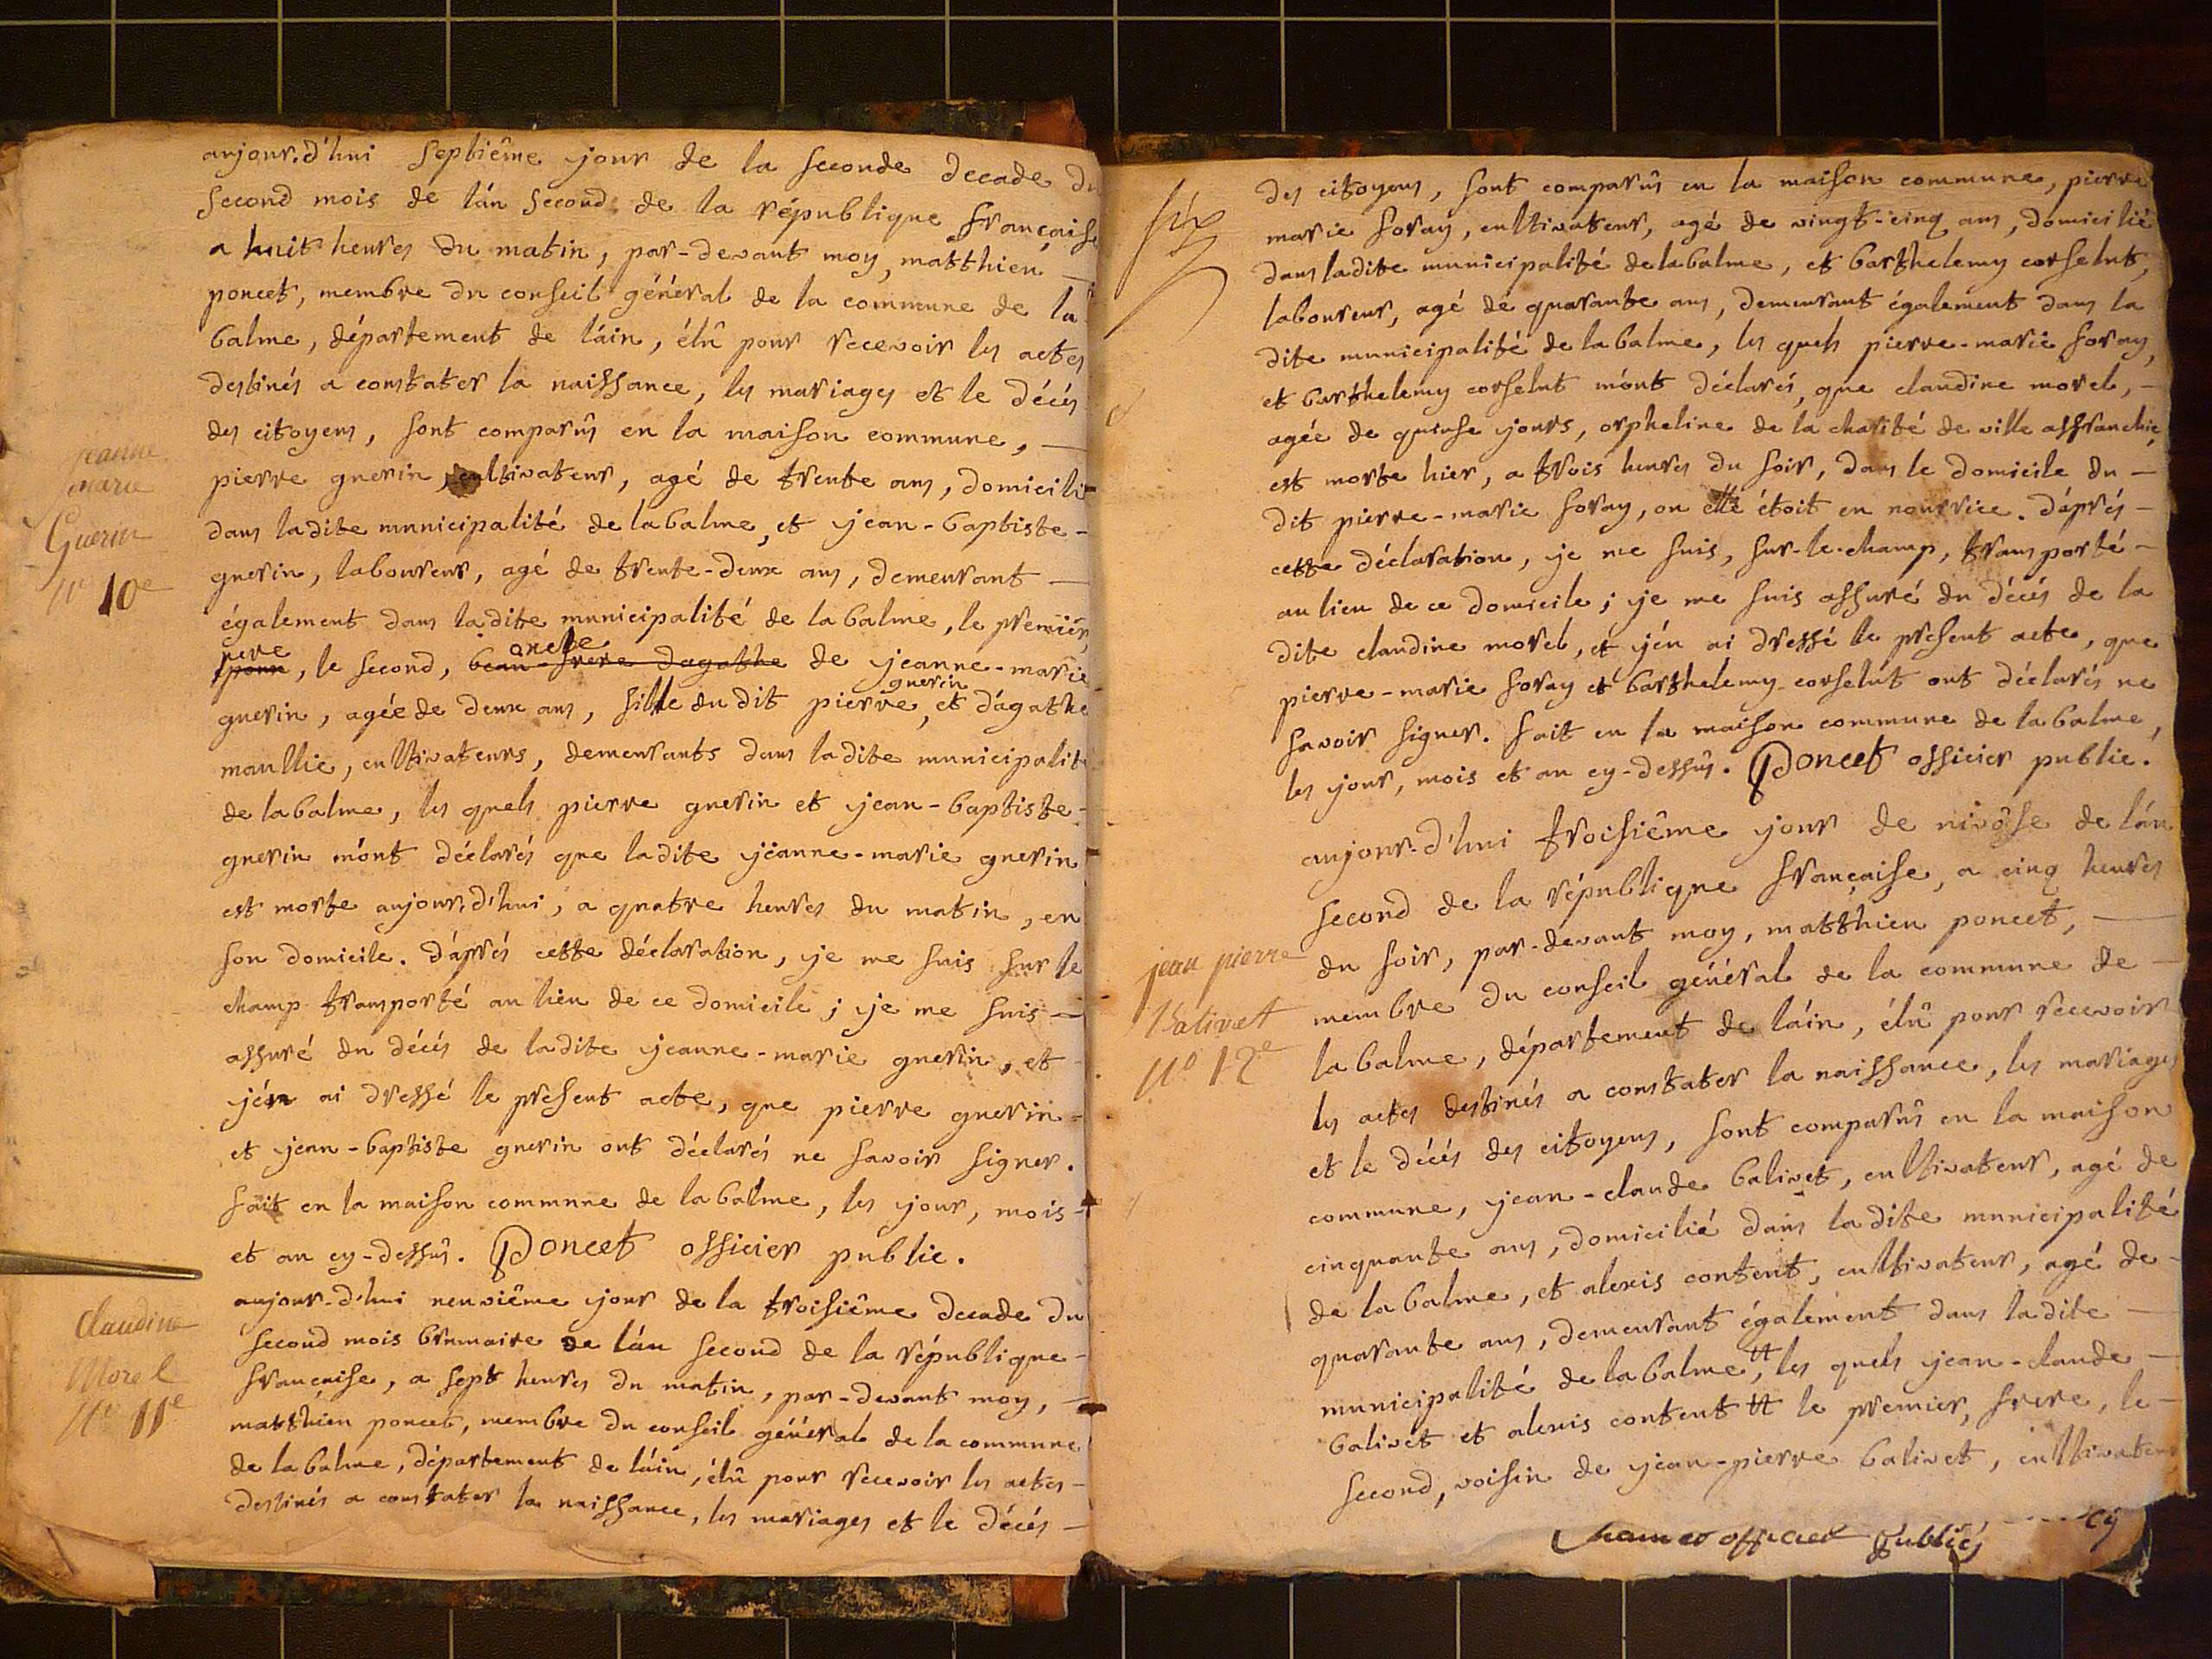 aujour-d'hui septiême jour de la seconde decade du
second mois de l'án second de la république française
a huit heures du matin, par-devant moy, matthieu
poncet, membre du conseil général de la commune de la
balme, département de l'áin, élû pour recevoir les actes
destinés a constater la naissance, les mariages et le décés
des citoyens, sont comparûs en la maison commune,
jeanne
marie
Guerin
N° 10e
pierre guerin, cultivateur, agé de trente ans, domicilié
dans ladite municipalité de labalme, et jean-baptiste
guerin, laboureur, agé de trente-deux ans, demeurant
également dans ladite municipalité de labalme, le premier,
pere oncle
époux, le second, beau-frere dagathe de jeanne-marie
guerin
guerin, agée de deux ans, fille du dit pierre, et d'ágathe
maullie, cultivateurs, demeurants dans ladite municipalité
de labalme, les quels pierre guerin et jean-baptiste
guerin m'ónt déclarés que ladite jéanne-marie guerin
est morte aujour-d'hui, a quatre heures du matin, en
son domicile. D'áprés cette déclaration, je me suis sur le
champ transporté au lieu de ce domicile ; je me suis
assuré du décés de ladite jeanne-marie guerin, et
j'én ai dressé le present acte, que pierre guerin
et jean-baptiste guerin ont déclarés ne savoir signer.
fait en la maison commune de labalme, les jour, mois
et an cy-dessûs. Poncet officier public.
Claudine
Morel
N° 11e
aujour-d'hui neuviême jour de la troisiême decade du
second mois brumaire de l'án second de la république
française, a sept heures du matin, par-devant moy,
matthieu poncet, membre du conseil général de la commune
de labalme, département de l'áin, élû pour recevoir les actes
destinés a constater la naissance, les mariages et le décés
six
des citoyens, sont comparûs en la maison commune, pierre
marie foray, cultivateur, agé de vingt-cinq ans, domicilié
dans ladite municipalité de labalme, et barthelemy corselut,
laboureur, agé de quarante ans, demeurant également dans la
dite municipalité de labalme, les quels pierre-marie foray,
et barthelemy corselut m'ónt déclarés, que claudine morel,
agée de quinse jours, orpheline de la charité de ville affranchie,
est morte hier, a trois heures du soir, dans le domicile du
dit pierre-marie foray, ou elle étoit en nourrice. D'áprés
cette déclaration, je me suis, sur-le-champ, transporté
au lieu de ce domicile ; je me suis assuré du décés de la
dite claudine morel, et j'én ai dressé le present acte, que
pierre-marie foray et barthelemy corselut ont déclarés ne
savoir signer. fait en la maison commune de labalme,
les jour, mois et an cy-dessûs. Poncet officier public.
jean pierre
Balivet
N° 12e
aujour-d'hui troisiême jour de nivôse de l'án
second de la république française, a cinq heures
du soir, par-devant moy, matthieu poncet,
membre du conseil général de la commune de
la balme, département de l'áin, élû pour recevoir
les actes destinés a constater la naissance, les mariages
et le décés des citoyens, sont comparûs en la maison
commune, jean-claude balivet, cultivateur, agé de
cinquante ans, domicilié dans ladite municipalité
de labalme, et alexis content, cultivateur, agé de
quarante ans, demeurant également dans ladite
municipalité de labalme, les quels jean-claude
balivet et alexis content le premier, frere, le
second, voisin de jean-pierre balivet, cultivateur
officier public